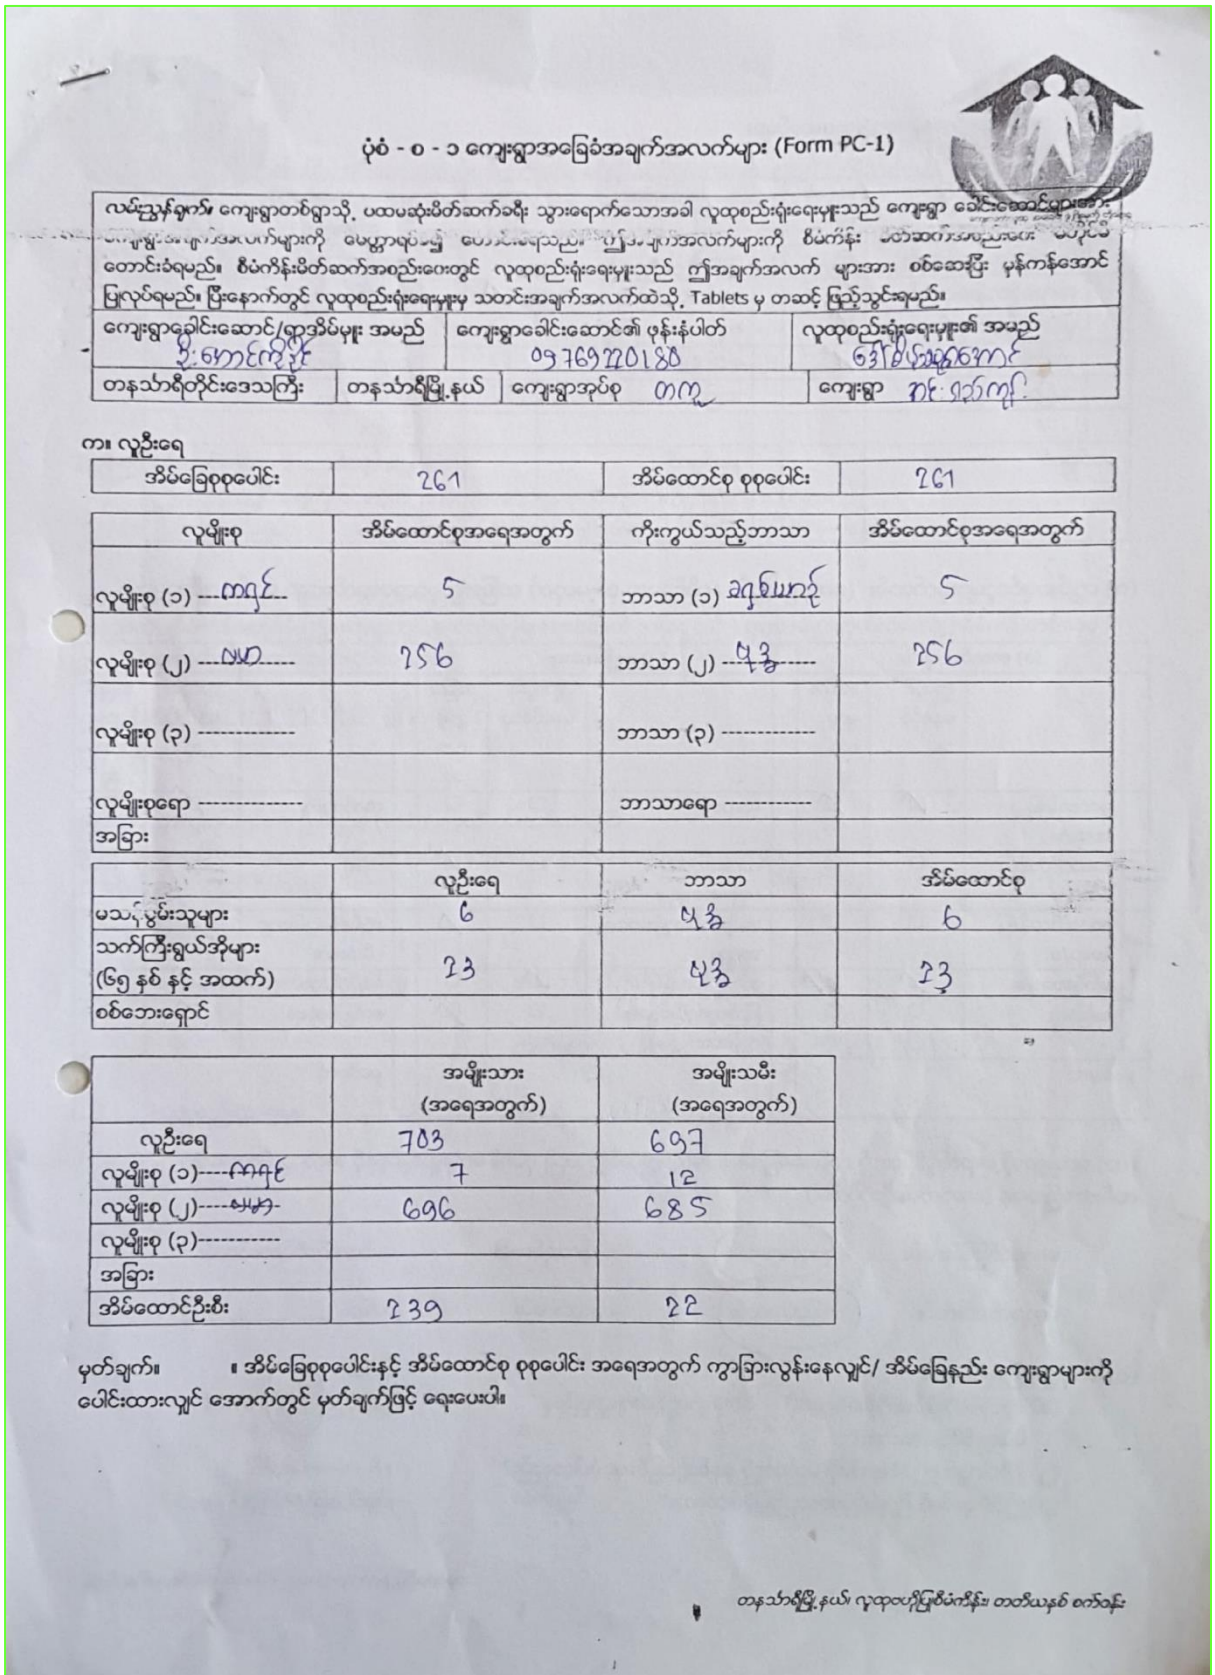 ပုံစံ - စ - ၁ ကျေးရွာအခြေခံအချက်အလက်များ (Form PC-1)
လမ်းညွှန်ချက်၊ ကျေးရွာတစ်ရွာသို့ ပထမဆုံးမိတ်ဆက်ခရီး သွားရောက်သောအခါ လူထုစည်းရုံးရေးမှူးသည် ကျေးရွာ ခေါင်းဆောင်များအား
အချက်အလက်များကို မေတ္တာရပ်ခံ၍ တောင်းခံရမည်။ ဤအချက်အလက်များကို စီမံကိန်း မိတ်ဆက်အစည်းဝေး မတိုင်မီ
တောင်းခံရမည်။ စီမံကိန်းမိတ်ဆက်အစည်းဝေးတွင် လူထုစည်းရုံးရေးမှူးသည် ဤအချက်အလက် များအား စစ်ဆေးပြီး မှန်ကန်အောင်
ပြုလုပ်ရမည်။ ပြီးနောက်တွင် လူထုစည်းရုံးရေးမှူးမှ သတင်းအချက်အလက်ထဲသို့ Tablets မှ တဆင့် ဖြည့်သွင်းရမည်။
ကျေးရွာခေါင်းဆောင်/ရာအိမ်မှူး အမည် ကျေးရွာခေါင်းဆောင်၏ ဖုန်းနံပါတ် လူထုစည်းရုံးရေးမှူး၏ အမည်
ဦးအောင်ကိုဦး 09769220180
တနင်္သာရီတိုင်းဒေသကြီး တနင်္သာရီမြို့နယ် ကျေးရွာအုပ်စု တကူ ကျေးရွာ
က။ လူဦးရေ
အိမ်ခြေစုစုပေါင်း 261 အိမ်ထောင်စု စုစုပေါင်း 261
လူမျိုးစု အိမ်ထောင်စုအရေအတွက် ကိုးကွယ်သည့်ဘာသာ အိမ်ထောင်စုအရေအတွက်
လူမျိုးစု (၁) ကရင် 5 ဘာသာ (၁) ခရစ်ယာဉ် 5
လူမျိုးစု (၂) ဗမာ 256 ဘာသာ (၂) ဗုဒ္ဓ 256
လူမျိုးစု (၃) ------------- ဘာသာ (၃) -------------
လူမျိုးစုရော -------------- ဘာသာရော ------------
အခြား
လူဦးရေ ဘာသာ အိမ်ထောင်စု
မသန်စွမ်းသူများ 6 ဗုဒ္ဓ 6
သက်ကြီးရွယ်အိုများ
(၆၅ နှစ် နှင့် အထက်) 23 ဗုဒ္ဓ 23
စစ်ဘေးရှောင်
အမျိုးသား အမျိုးသမီး
(အရေအတွက်) (အရေအတွက်)
လူဦးရေ 703 697
လူမျိုးစု (၁)----ကရင် 7 12
လူမျိုးစု (၂)----ဗမာ- 696 685
လူမျိုးစု (၃)-----------
အခြား
အိမ်ထောင်ဦးစီး 239 22
မှတ်ချက်။ ။ အိမ်ခြေစုစုပေါင်းနှင့် အိမ်ထောင်စု စုစုပေါင်း အရေအတွက် ကွာခြားလွန်းနေလျှင်/ အိမ်ခြေနည်း ကျေးရွာများကို
ပေါင်းထားလျှင် အောက်တွင် မှတ်ချက်ဖြင့် ရေးပေးပါ။
တနင်္သာရီမြို့နယ်၊ လူထုဗဟိုပြုစီမံကိန်း၊ တတိယနှစ် စက်ဝန်း